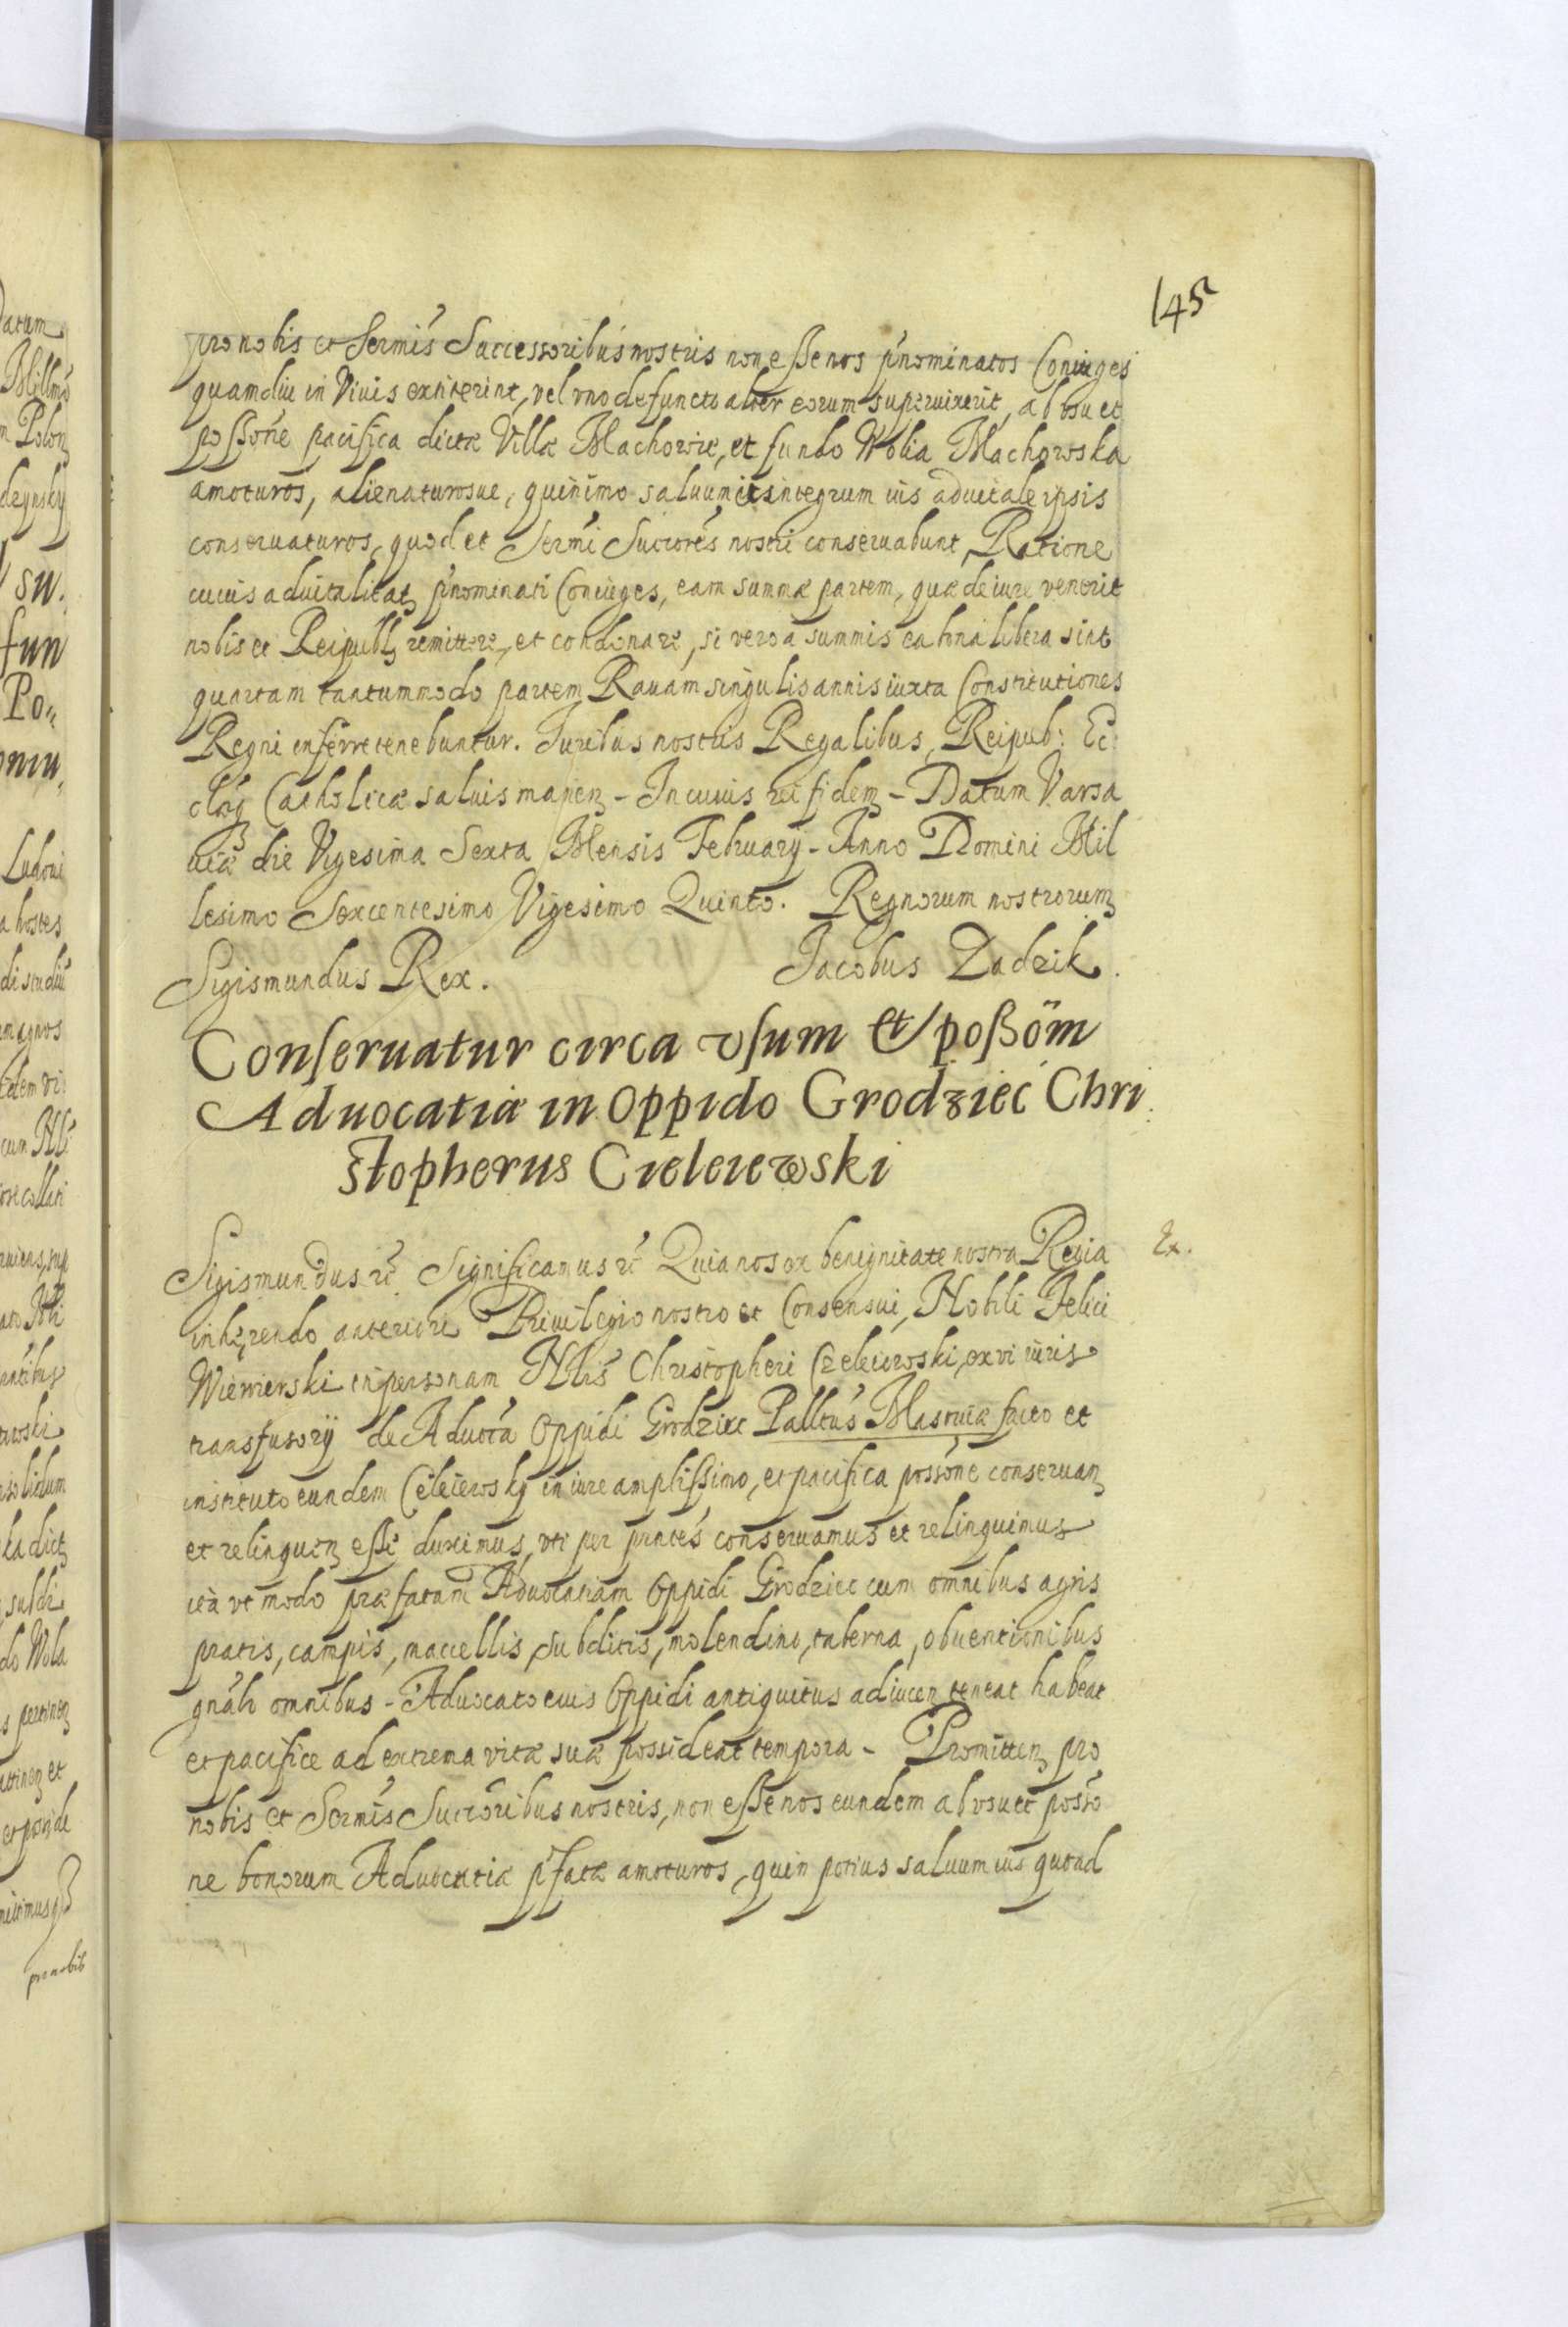 145
pro nobis et Sermis Successoribus nostris non eße nos p'nominatos Coniuges
quamdiu in Viuis extiterint, vel vno defuncto alter eorum superuixerit, ab vsu et
poßone pacifica dictæ Villæ Machowie, et fundo Wolia Machowska
amoturos, alienaturosue, quinimo saluum et integrum ius aduitale ipsis
conseruaturos, quod et Sermi Succores nostri conseruabunt, Ratione
cuius aduitalitatz p'nominati Coniuges, eam summæ partem, quæ de iure venerit
nobis et Reipublz remittere, et condonare, si vero a summis ea bna libera sint
quartam tantummodo partem Rauam singulis annis iuxta Constitutiones
Regni inferre tenebuntur. Juribus nostris Regalibus, Reipub: Ec
clæq Catholicæ saluis manenz - In cuius rei fidem - Datum Varsa
uiæ die Vigesima Sexta Mensis February - Anno Domini Mil
lesimo Sexcentesimo Vigesimo Quinto. Regnorum nostrorum
Sigismundus Rex. Jacobus Zadzik.
Conseruatur circa vsum et poßom
Aduocatiæ in Oppido Grodziec Chri
stopherus Cieleiewski
Sigismundus rc Significamus rc Quia nos ex benignitate nostra Regia
Ex.
inhęrendo anteriori Priuilegio nostro et Consensui, Nobili Felici
Wiewierski in personam Nlis Christopheri Czeleiewski, ex vi iuris
transfusorij de Aduota Oppidi Grodziec Palltus Masouiæ facto et
instituto eundem Celeiewsky in iure amplißimo, et pacifica possone conseruanz
et relinquenz eße duximus, vti per prntes conseruamus et relinquimus
ita vt modo præfatam Aduocatiam Oppidi Grodziec cum omnibus agris
pratis, campis, maccellis, subditis, molendino, taberna, obuentionibus
gnalr omnibus - Aduocato eius Oppidi antiquitus adiacen teneat habeat
et pacifice ad extrema vitæ suæ possideat tempora - Promittenz pro
nobis et Sermis Succoribus nostris, non eße nos eundem ab vsu et posso
ne bonorum Aduocatiæ p'fatæ amoturos, quin potius saluum ius quoad